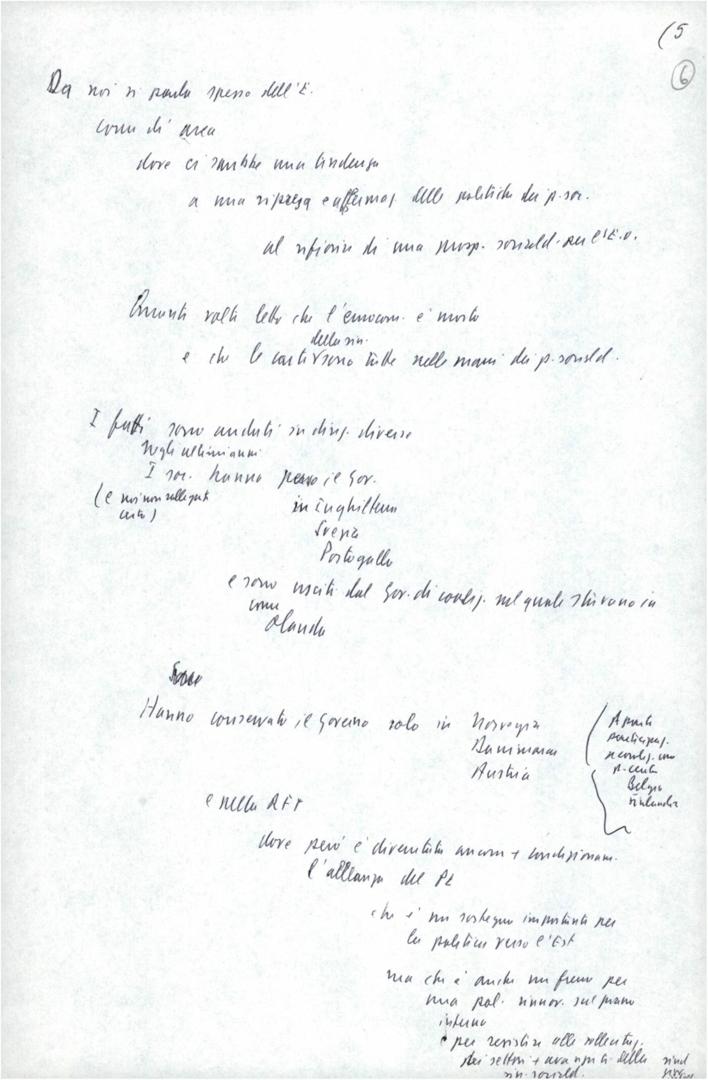 (5
6
Da noi si parla spesso dell'E.
come di area
dove ci sarebbe una tendenza
a una ripresa e affermaz. delle politiche dei p. soc.
al rifiorire di una prosp. sociald. per l'E.O.
Quante volte letto che l'eurocom. è morto
della sin.
e che le carte sono tutte nelle mani dei p. sociald.
I fatti sono andati in direz. diversa
negli ultimi anni
I soc. hanno perso il Gov.
(e noi non rallegrati
certo)
in Inghilterra
Svezia
Portogallo
e sono usciti dal Gov. di coaliz. nel quale stavano in
come
Olanda
Hanno conservato il Governo solo in Norvegia
Danimarca
Austria
A parte
partecipaz.
a coaliz. con
p. centro
Belgio
Finlandia
e nella RFT
dove però è diventata ancora + condizionan.
l'alleanza del PL
che è un sostegno importante per
la politica verso l'Est
ma che è anche un freno per
una pol. rinnov. sul piano
interno
e per resistere alle sollecitaz.
dei settori + avanzati della
sin. sociald.